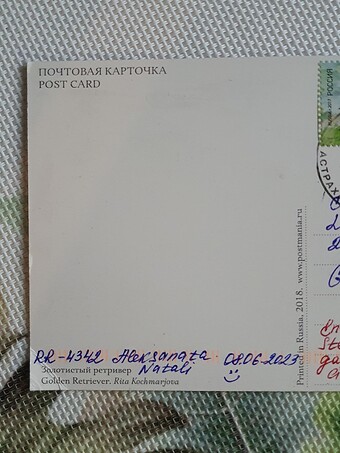 ПОЧТОВАЯ КАРТОЧКА
POST CARD
РОССИЯ
АСТРАХ
Printed in Russia, 2018. www.postmania.ru
RR-4342 Aleksanata 08.06.2023
Natali
Золотистый ретривер
Golden Retriever. Rita Kochmarjova